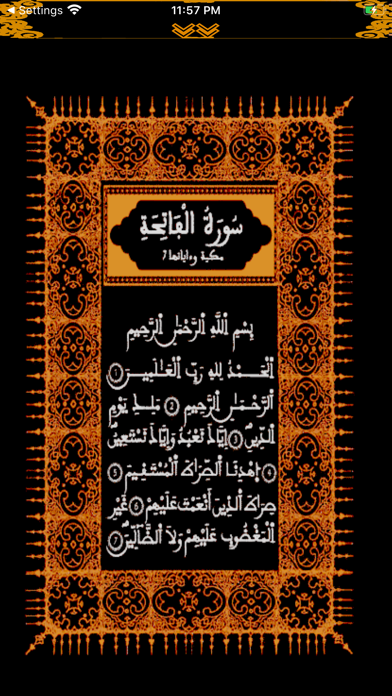 Settings
11:57 PM
سُورَةُ الْفَاتِحَةِ
مكية وءاياتها 7
بِسْمِ اللَّهِ الرَّحْمَٰنِ الرَّحِيمِ
الْحَمْدُ لِلهِ رَبِّ الْعَٰلَمِينَ 1
الرَّحْمَٰنِ الرَّحِيمِ 2 مَلِكِ يَوْمِ
الدِّينِ 3 إِيَّاكَ نَعْبُدُ وَإِيَّاكَ نَسْتَعِينُ
4 اِهْدِنَا الصِّرَاطَ الْمُسْتَقِيمَ 5
صِرَاطَ الذِينَ أَنْعَمْتَ عَلَيْهِمْ 6 غَيْرِ
الْمَغْضُوبِ عَلَيْهِمْ وَلَا الضَّالِّينَ 7